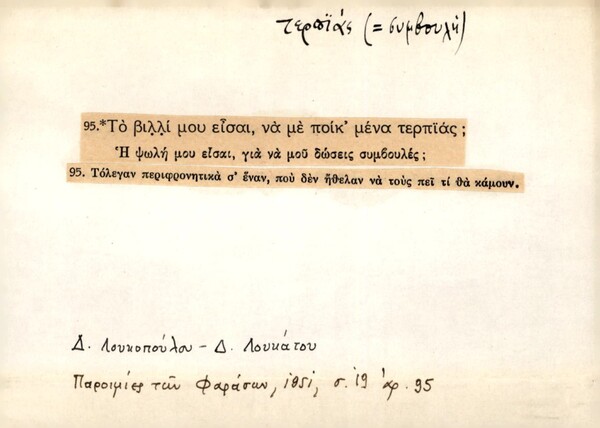 τερπϊάς (= συμβουλή)
95.*Τὸ βιλλί μου εἶσαι, νὰ μὲ ποίκ' μένα τερπϊάς ;
Ἡ ψωλή μου εἶσαι, γιὰ νὰ μοῦ δώσεις συμβουλές ;
95. Τόλεγαν περιφρονητικὰ σ' ἕναν, ποὺ δὲν ἤθελαν νὰ τοὺς πεῖ τί θὰ κάμουν.
Δ. Λουκοπούλου - Δ. Λουκάτου
Παροιμίες τῶν Φαράσων, 1951, σ. 19 ἀρ. 95